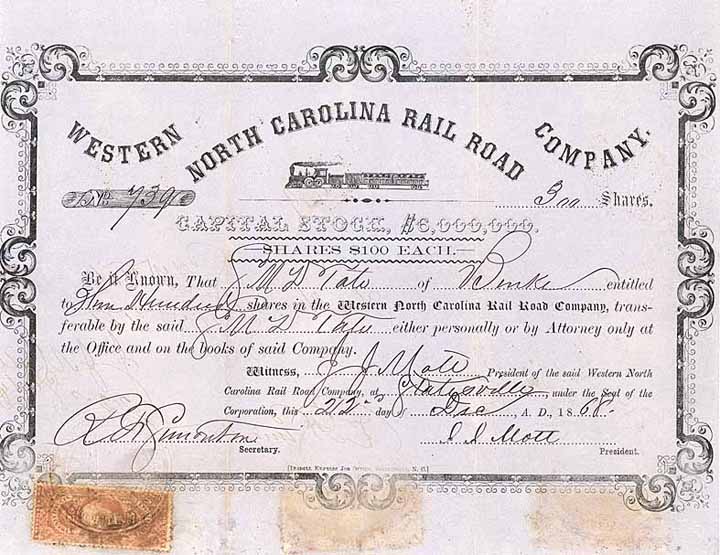 WESTERN NORTH CAROLINA RAIL ROAD COMPANY.
No 739 300 Shares.
CAPITAL STOCK, $6,000,000.
SHARES $100 EACH.
Be it Known, That S M D Tate of Burke entitled
to Three Hundred shares in the Western North Carolina Rail Road Company, trans-
ferable by the said S M D Tate either personally or by Attorney only at
the Office and on the books of said Company.
Witness, J J Mott President of the said Western North
Carolina Rail Road Company, at Statesville under the Seal of the
Corporation, this 22d day of Dec A. D., 1868.
R F Simonton J J Mott
Secretary. President.